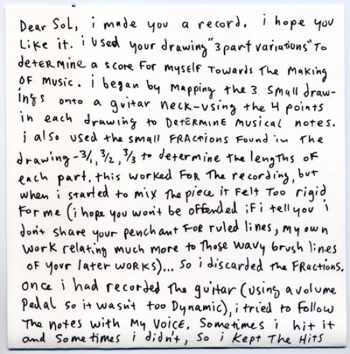 Dear Sol, i made you a record. i hope you
Like it. i used your drawing "3 part variations" To
deTermine a score for myself Towards The Making
OF music. i began by Mapping the 3 small draw-
ings onto a guitar neck-using the 4 points
in each drawing to DeTermine Musical notes.
i also used the small FRActions Found in The
drawing - 3/1, 3/2, 3/3 to determine the lengths of
each part. this worked FOR The recording, but
when i started to mix The piece it Felt Too rigid
For me (i hope you won't be offended if i tell you i
don't share your penchant For ruled lines, my own
work relating much more to Those wavy brush lines
of your later works)... So i discarded The Fractions.
Once i had recorded the guitar (using a volume
Pedal so it wasn't too Dynamic), i tried to Follow
The notes with My Voice. Sometimes i hit it
and Sometimes i didn't, so i Kept The Hits